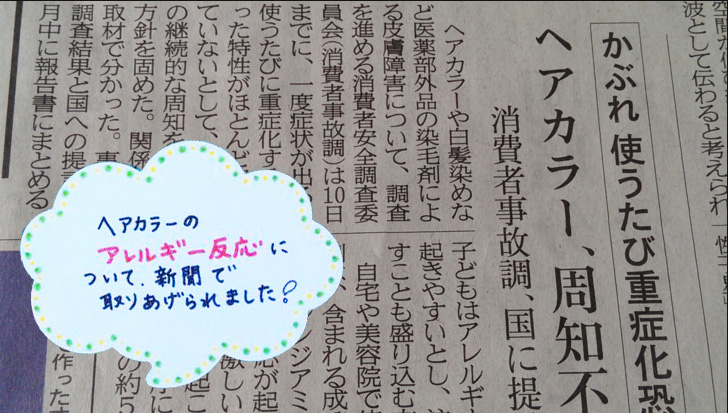 波として伝わると考えられ
かぶれ 使うたび重症化恐
ヘアカラー、周知不
消費者事故調、国に提
ヘアカラーや白髪染めな
ど医薬部外品の染毛剤によ
る皮膚障害について、調査
を進める消費者安全調査委
員会(消費者事故調)は10日
までに、一度症状が出
使うたびに重症化す
った特性がほとんど
ていないとして、
の継続的な周知を
方針を固めた。関係
取材で分かった。
調査結果と国への提
月中に報告書にまとめる
子どもはアレルギ
起きやすいとし、
すことも盛り込む
自宅や美容院で
、含まれる成
ジアミ
応が起
激しい
の約5
作った
ヘアカラーの
アレルギー反応に
ついて、新聞で
取りあげられました!